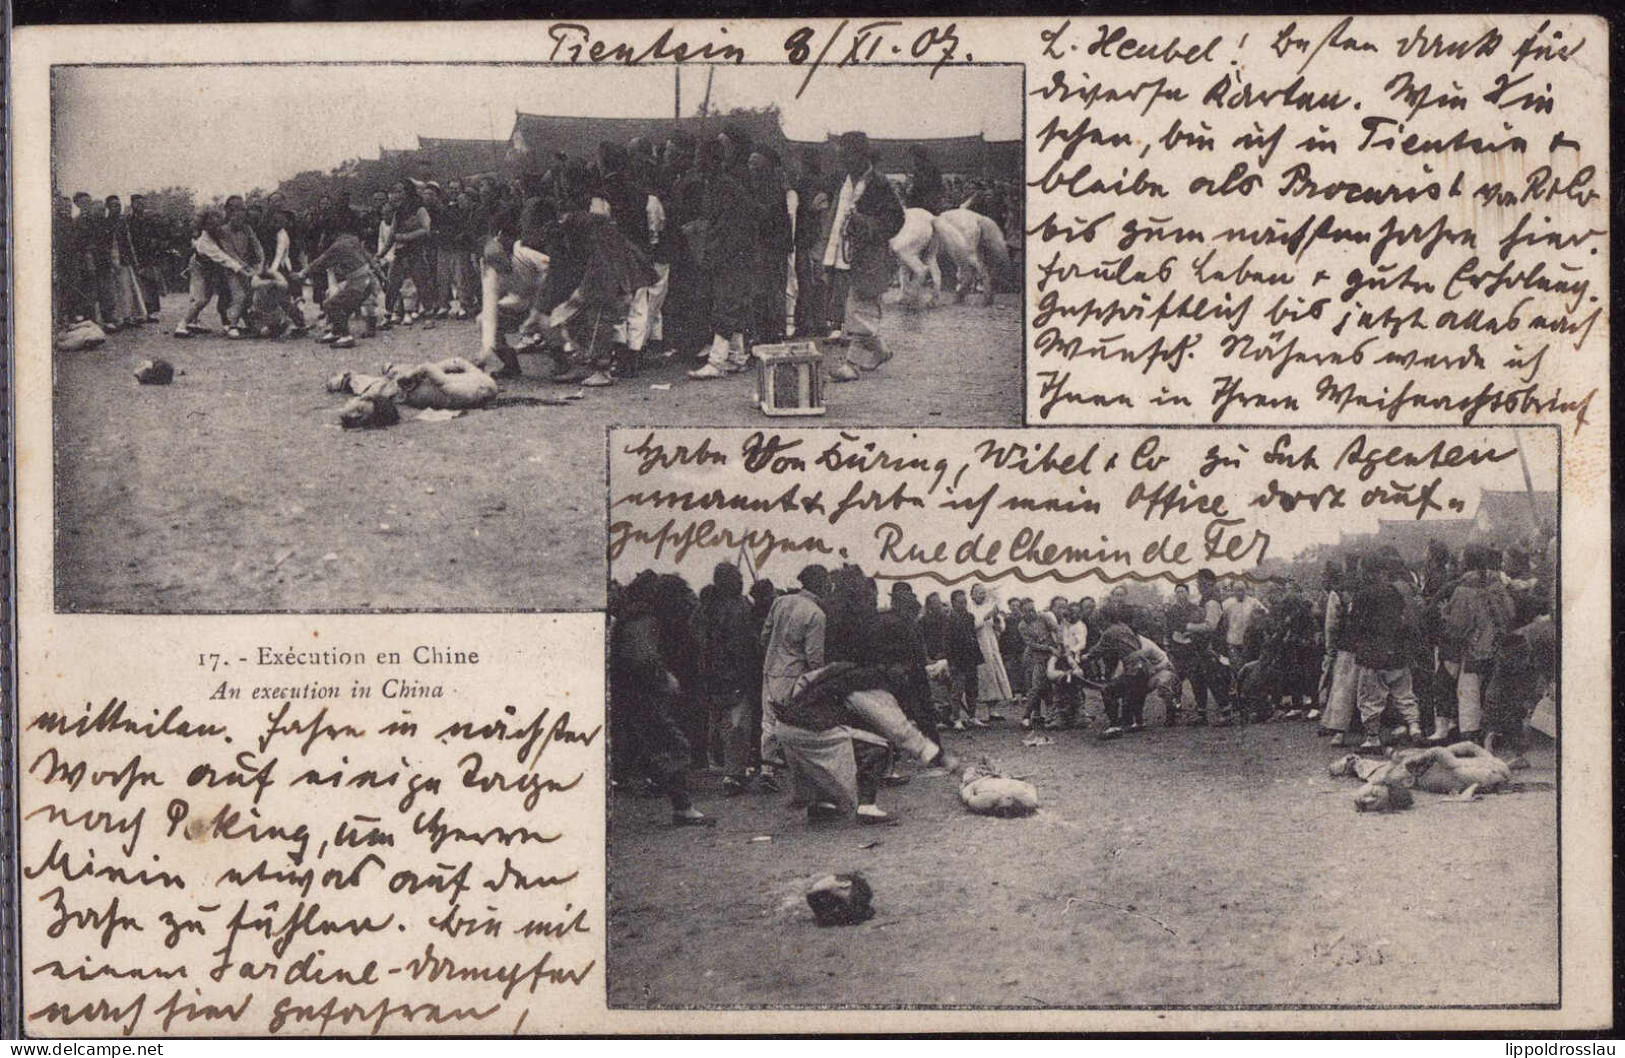 Tientsin 8/XI.07.
L. Heubel! Besten Dank für
diverse Karten. Wie Sie
sehen, bin ich in Tientsin &
bleibe als Procurist von R&Co
bis zum nächsten Jahre hier.
faules Leben & gute Erholung.
Geschäftlich bis jetzt alles nach
Wunsch. Näheres werde ich
Ihnen in Ihrem Weihnachtsbrief
Habe Von Düring, Wibel & Co zu Agenten
ernannt & habe ich mein Office dort auf-
geschlagen. Rue de Chemin de Fer
17. - Exécution en Chine
An execution in China
mitteilen. Fahre in nächster
Woche auf einige Tage
nach Peking, um Herrn
etwas auf den
Zahn zu fühlen. Bin mit
einem Sardine-Dampfer
nach hier gefahren,
lippoldrosslau